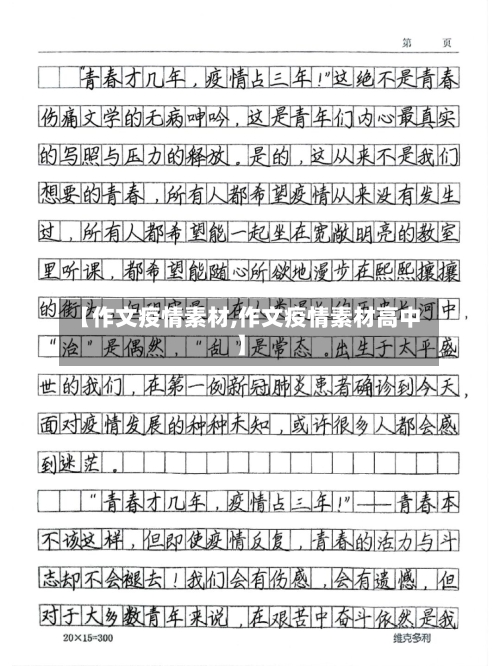 第 页
"青春才几年，疫情占三年！"这绝不是青春
伤痛文学的无病呻吟，这是青年们内心最真实
的写照与压力的释放。是的，这从来不是我们
想要的青春，所有人都希望疫情从来没有发生
过，所有人都希望能一起坐在宽敞明亮的教室
里听课，都希望能随心所欲地漫步在熙熙攘攘
的街头
河中，
【作文疫情素材,作文疫情素材高中
】
"治"是偶然，"乱"是常态。出生于太平盛
世的我们，在第一例新冠肺炎患者确诊到今天，
面对疫情发展的种种未知，或许很多人都会感
到迷茫。
"青春才几年，疫情占三年！"——青春本
不该这样，但即使疫情反复，青春的活力与斗
志却不会褪去！我们会有伤感，会有遗憾，但
对于大多数青年来说，在艰苦中奋斗依然是我
20×15=300
维克多利